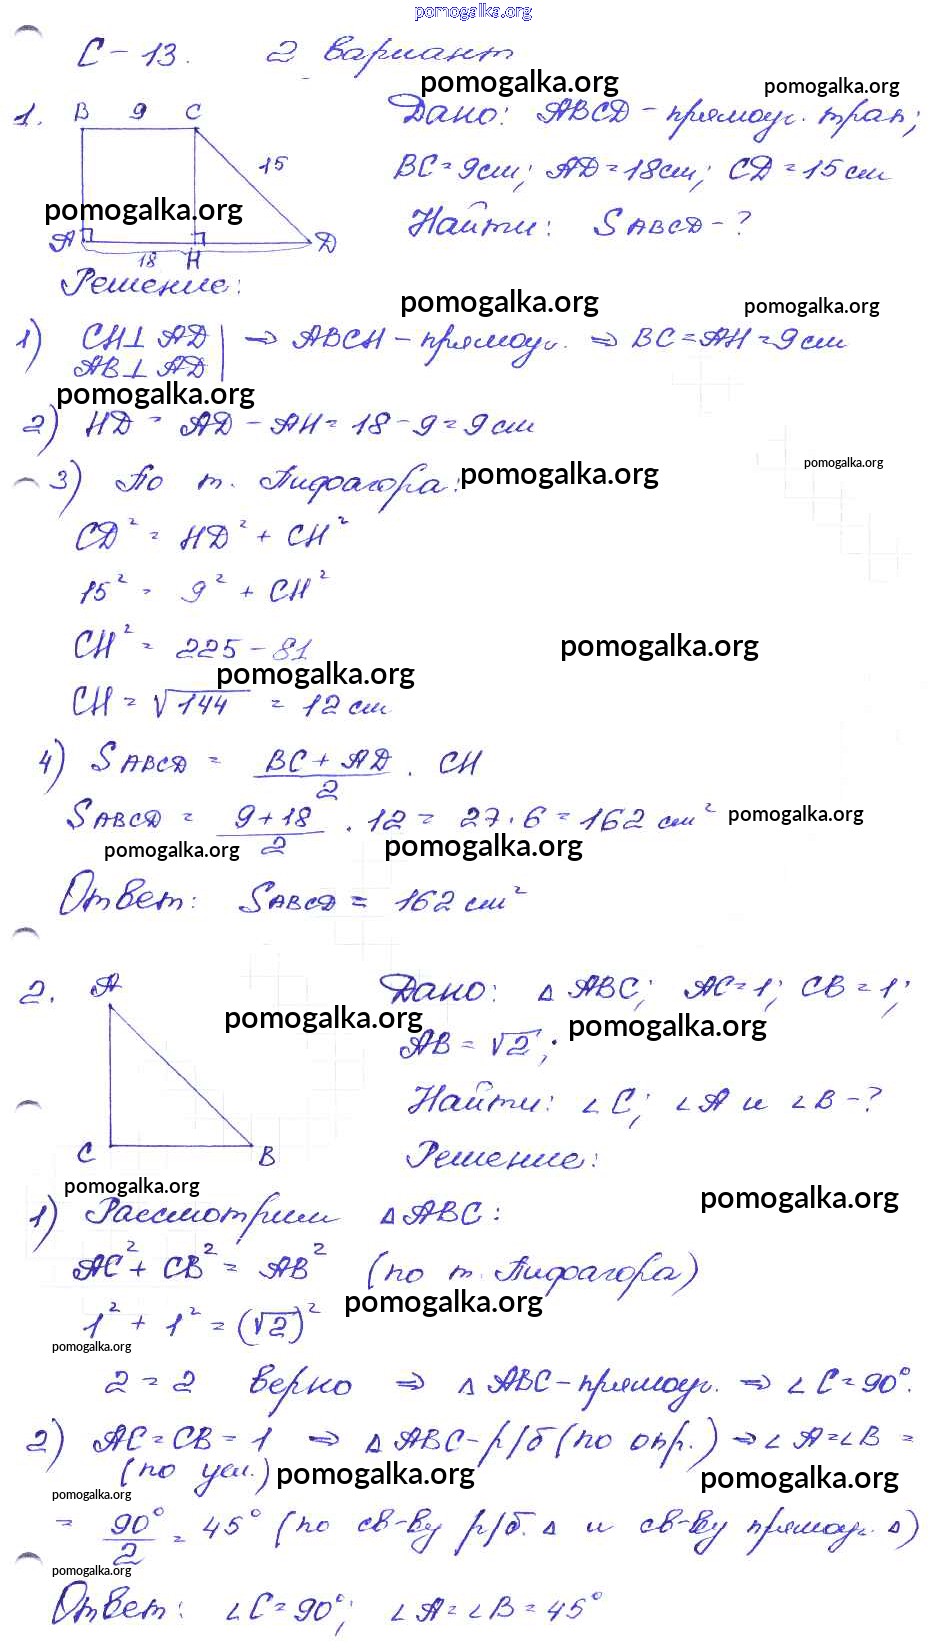 pomogalka.org
С-13. 2 вариант
pomogalka.org pomogalka.org
1. B 9 C Дано: ABCD - прямоуг. трап;
15 BC = 9см; AD = 18см; CD = 15см
pomogalka.org
A 18 H D Найти: SABCD - ?
Решение:
pomogalka.org pomogalka.org
1) CH⊥AD | ⇒ ABCH - прямоуг. ⇒ BC = AH = 9см
AB⊥AD |
pomogalka.org
2) HD = AD - AH = 18 - 9 = 9см
pomogalka.org
3) По т. Пифагора: pomogalka.org
CD² = HD² + CH²
15² = 9² + CH²
CH² = 225 - 81 pomogalka.org
pomogalka.org
CH = √144 = 12см
4) SABCD = (BC + AD)/2 · CH
SABCD = (9 + 18)/2 · 12 = 27 · 6 = 162 см² pomogalka.org
pomogalka.org pomogalka.org
Ответ: SABCD = 162 см²
2. A Дано: △ABC; AC = 1; CB = 1;
pomogalka.org pomogalka.org
AB = √2;
Найти: ∠C; ∠A и ∠B - ?
C B Решение:
pomogalka.org pomogalka.org
1) Рассмотрим △ABC:
AC² + CB² = AB² (по т. Пифагора)
pomogalka.org
1² + 1² = (√2)²
pomogalka.org
2 = 2 верно ⇒ △ABC - прямоуг. ⇒ ∠C = 90°.
2) AC = CB = 1 ⇒ △ABC - р/б (по опр.) ⇒ ∠A = ∠B =
(по усл.) pomogalka.org pomogalka.org
pomogalka.org
= 90°/2 = 45° (по св-ву р/б. △ и св-ву прямоуг. △)
pomogalka.org
Ответ: ∠C = 90°; ∠A = ∠B = 45°